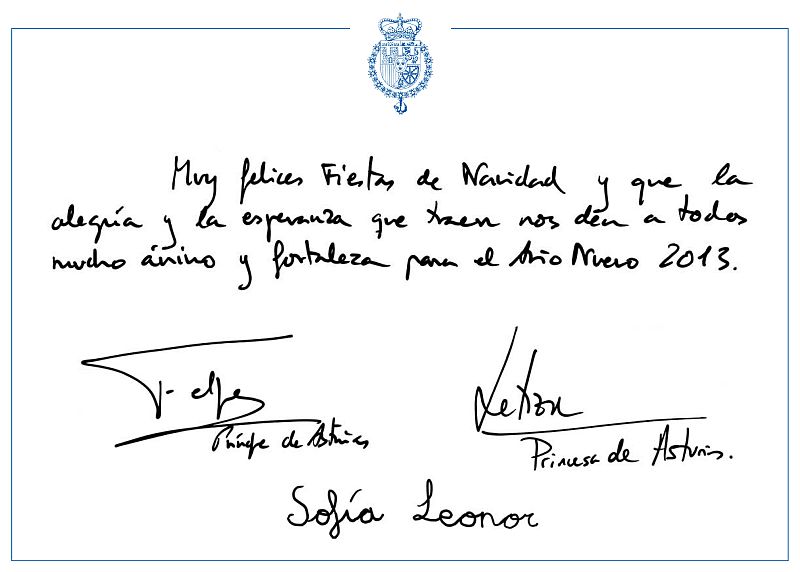 Muy felices Fiestas de Navidad y que la
alegría y la esperanza que traen nos den a todos
mucho ánimo y fortaleza para el Año Nuevo 2013.
Felipe
Letizia
Príncipe de Asturias
Princesa de Asturias.
Sofía Leonor